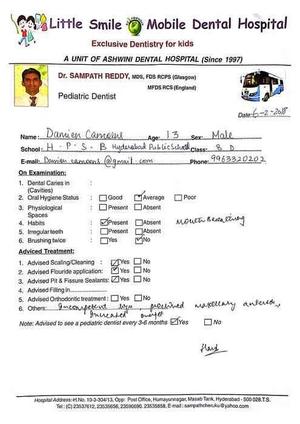 Little Smile Mobile Dental Hospital
Exclusive Dentistry for kids
A UNIT OF ASHWINI DENTAL HOSPITAL (Since 1997)
Dr. SAMPATH REDDY, MDS, FDS RCPS (Glasgow)
MFDS RCS (England)
Pediatric Dentist
Date: 6-2-2018
Name: Damien Camoens Age: 13 Sex: Male
School: H-P-S-B Hyderabad Public School Class: 8 D
E-mail: Damien.camoens@gmail.com Phone: 9963320202
On Examination:
1. Dental Caries in (Cavities)
2. Oral Hygiene Status : Good Average Poor
3. Physiological Spaces : Present Absent
4. Habits Present Absent Mouth Breathing
5. Irregular teeth : Present Absent
6. Brushing twice : Yes No
Adviced Treatment:
1. Advised Scaling/Cleaning : Yes No
2. Advised Flouride application : Yes No
3. Advised Pit & Fissure Sealants : Yes No
4. Advised Filling in
5. Advised Orthodontic treatment : Yes No
6. Others: Incompetent lip, proclined maxillary anteriors,
Increased overjet
Note: Advised to see a pediatric dentist every 3-6 months Yes No
Hospital Address: H.No. 10-3-304/13, Opp: Post Office, Humayunnagar, Masab Tank, Hyderabad - 500 028.T.S.
Tel: (C) 23537612, 23535656, 23590696, 23535858, E-mail : sampathcheruku@yahoo.com